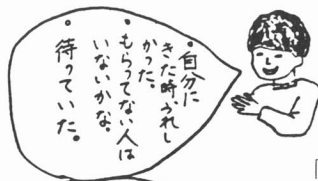 ・自分に
きた時、うれし
かった。
・もらってない人は
いないかな。
・待っていた。